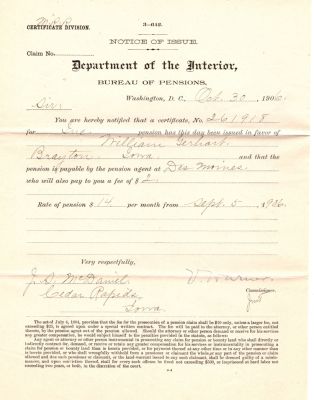 CERTIFICATE DIVISION.
3-612.
NOTICE OF ISSUE.
Claim No.
Department of the Interior,
BUREAU OF PENSIONS,
Washington, D. C., Oct. 30, 1906.
Sir:
You are hereby notified that a certificate, No. 261918
for pension has this day been issued in favor of
William Gerhart
Brayton, Iowa and that the
pension is payable by the pension agent at Des Moines
who will also pay to you a fee of $ 2.
Rate of pension $ 14 per month from Sept. 5, 1906.
Very respectfully,
J. D. McDaniel V. Warner
Cedar Rapids, Commissioner.
Iowa.
The act of July 4, 1884, provides that the fee for the prosecution of a pension claim shall be $10 only, unless a larger fee, not
exceeding $25, is agreed upon under a special written contract. The fee will be paid to the attorney, or other person entitled
thereto, by the pension agent out of the pension allowed. Should the attorney or other person demand or receive for his services
any greater compensation, he would subject himself to the penalties provided in the statute, as follows:
Any agent or attorney or other person instrumental in prosecuting any claim for pension or bounty land who shall directly or
indirectly contract for, demand, or receive or retain any greater compensation for his services or instrumentality in prosecuting a
claim for pension or bounty land than is herein provided, or for payment thereof at any other time or in any other manner than
is herein provided, or who shall wrongfully withhold from a pensioner or claimant the whole or any part of the pension or claim
allowed and due such pensioner or claimant, or the land warrant issued to any such claimant, shall be deemed guilty of a misde-
meanor, and upon conviction thereof, shall for every such offense be fined not exceeding $500, or imprisoned at hard labor not
exceeding two years, or both, in the discretion of the court.